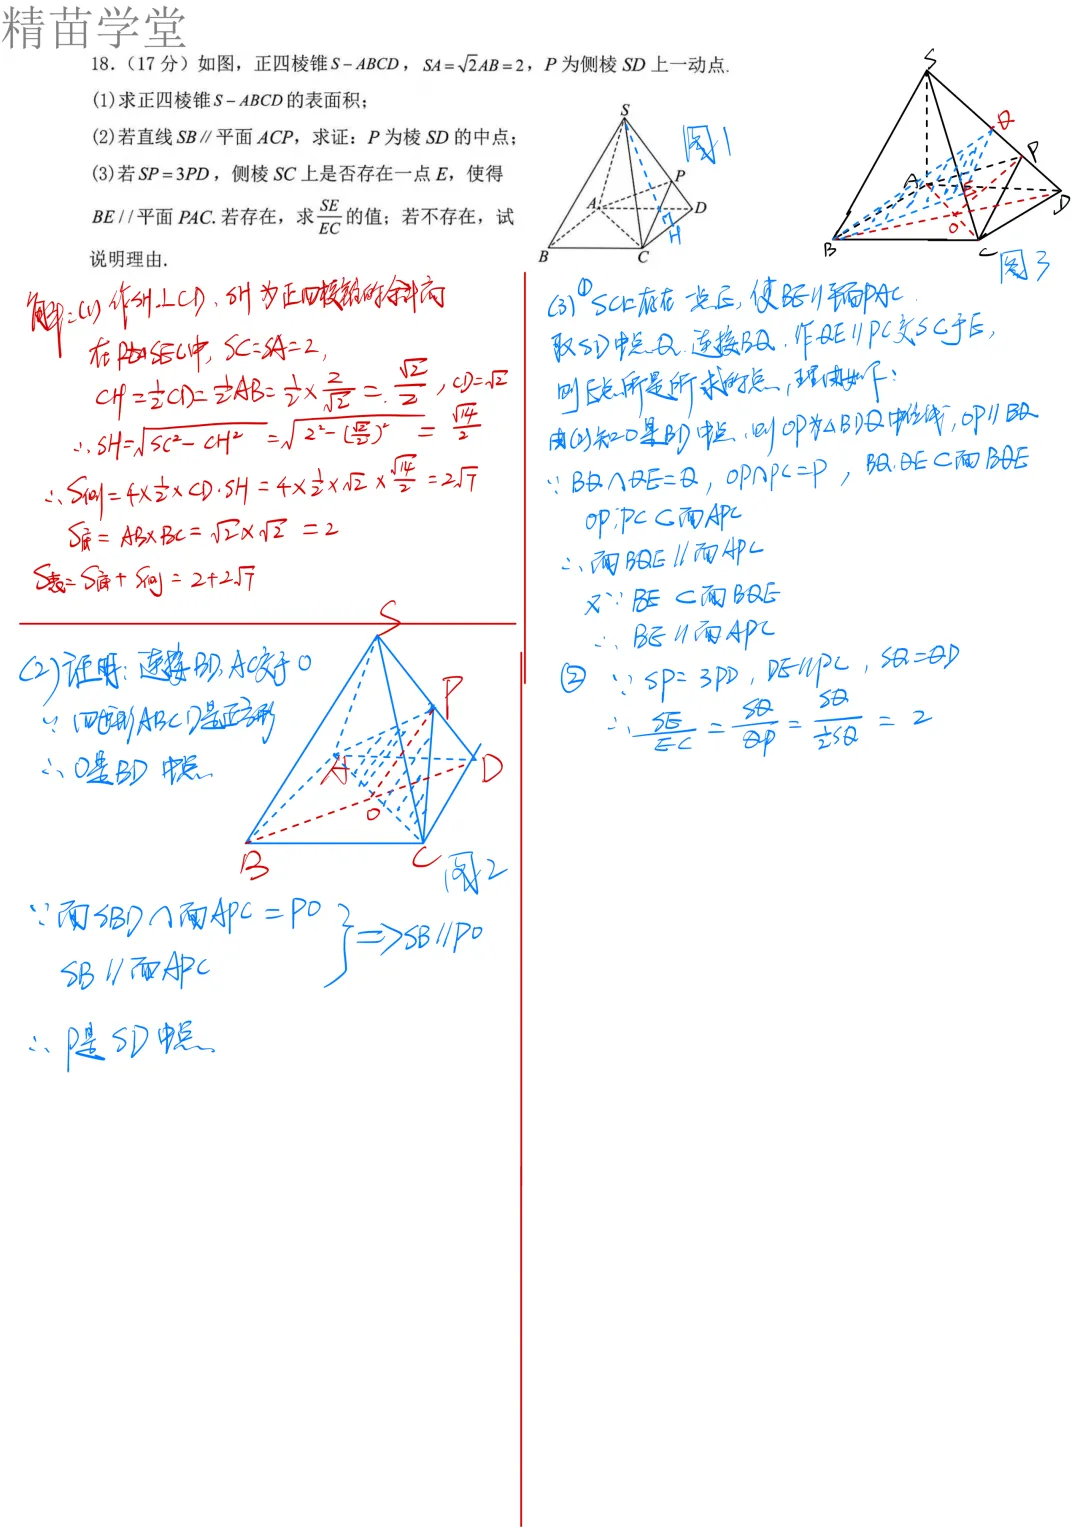 精苗学堂
18.（17 分）如图，正四棱锥 S－ABCD，SA=√2AB=2，P 为侧棱 SD 上一动点.
(1)求正四棱锥 S－ABCD 的表面积；
(2)若直线 SB∥平面 ACP，求证：P 为棱 SD 的中点；
(3)若 SP=3PD，侧棱 SC 上是否存在一点 E，使得
BE//平面 PAC. 若存在，求 SE/EC 的值；若不存在，试
说明理由.
S
P
A
D
H
B
C
图1
S
Q
P
A
E
D
O
B
C
图3
解:(1) 作SH⊥CD, SH为正四棱锥的斜高
SC=SA=2,
CH=½CD=½AB=½×2/√2=√2/2, CD=√2
∴SH=√(SC²-CH²)=√(2²-(√2/2)²)=√14/2
∴S侧=4×½×CD·SH=4×½×√2×√14/2=2√7
S底=AB×BC=√2×√2=2
S表=S底+S侧=2+2√7
(2)证明:连接BD,AC交于O
∵四边形ABCD是正方形
∴O是BD中点
S
P
A
D
O
B
C
图2
∵面SBD∩面APC=PO
SB//面APC
}=>SB//PO
∴P是SD中点
(3)①SC上存在一点E,使BE//平面PAC.
取SD中点Q.连接BQ.作QE//PC交SC于E,
则E点所是所求的点,理由如下:
由(2)知O是BD中点,则OP为△BDQ中位线,OP//BQ
∵BQ∩QE=Q, OP∩PC=P, BQ.QE⊂面BQE
OP;PC⊂面APC
∴面BQE//面APC
又∵BE⊂面BQE
∴BE//面APC
②∵SP=3PD, QE//PC, SQ=QD
∴SE/EC=SQ/QP=SQ/½SQ=2